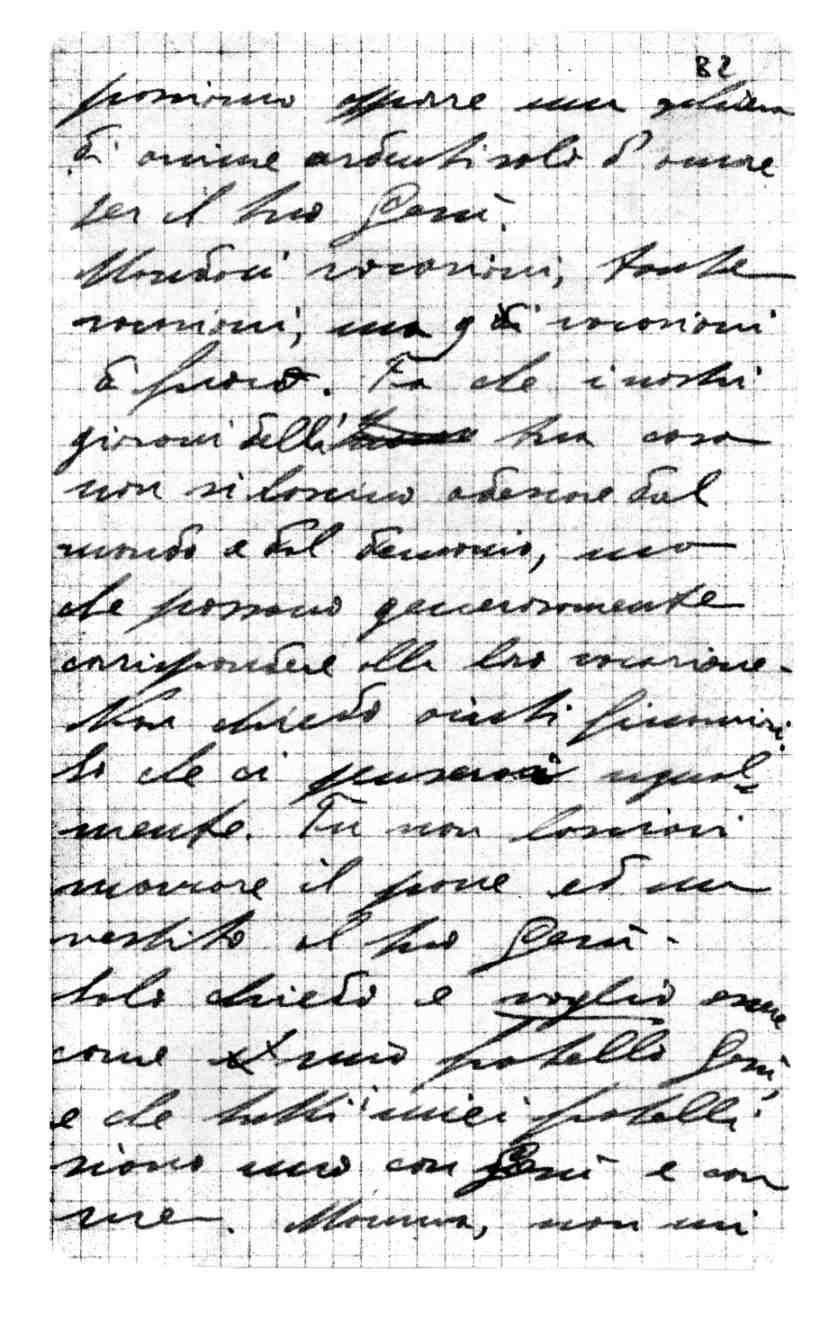 82
possiamo opporre una schiera
di anime ardenti solo d'amore
per il tuo Gesù.
Mandaci vocazioni, tante
vocazioni, ma di vocazioni
di fuoco. Fa che i nostri
giovani della tua casa
non si lascino adescare dal
mondo e dal demonio, ma
che possano generosamente
corrispondere alla loro vocazione.
Non chiedo aiuti finanziari
so che ci penserai ugual
mente. Tu non lasciavi
mancare il pane ed un
vestito al tuo Gesù.
Solo chiedo e voglio essere
come mio fratello Gesù,
e che tutti i miei fratelli
siano uno con Gesù e con
me. Mamma, non mi